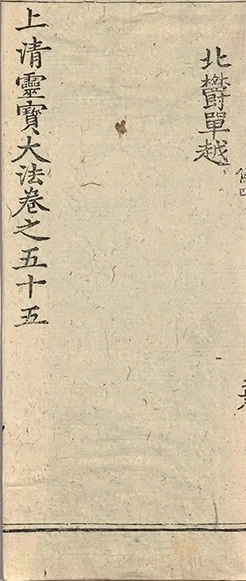 北欝單越
上清靈寳大法卷之五十五